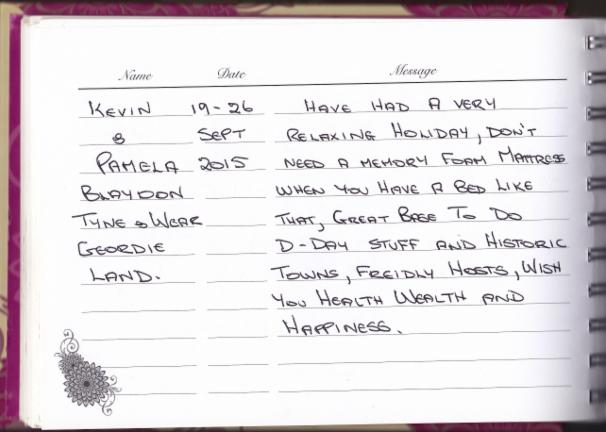 Name Date Message
KEVIN 19-26 HAVE HAD A VERY
& SEPT RELAXING HOLIDAY, DON'T
PAMELA 2015 NEED A MEMORY FOAM MATTRESS
BLAYDON WHEN YOU HAVE A BED LIKE
TYNE & WEAR THAT, GREAT BASE TO DO
GEORDIE D-DAY STUFF AND HISTORIC
LAND. TOWNS, FREIDLY HOSTS, WISH
YOU HEALTH WEALTH AND
HAPPINESS.